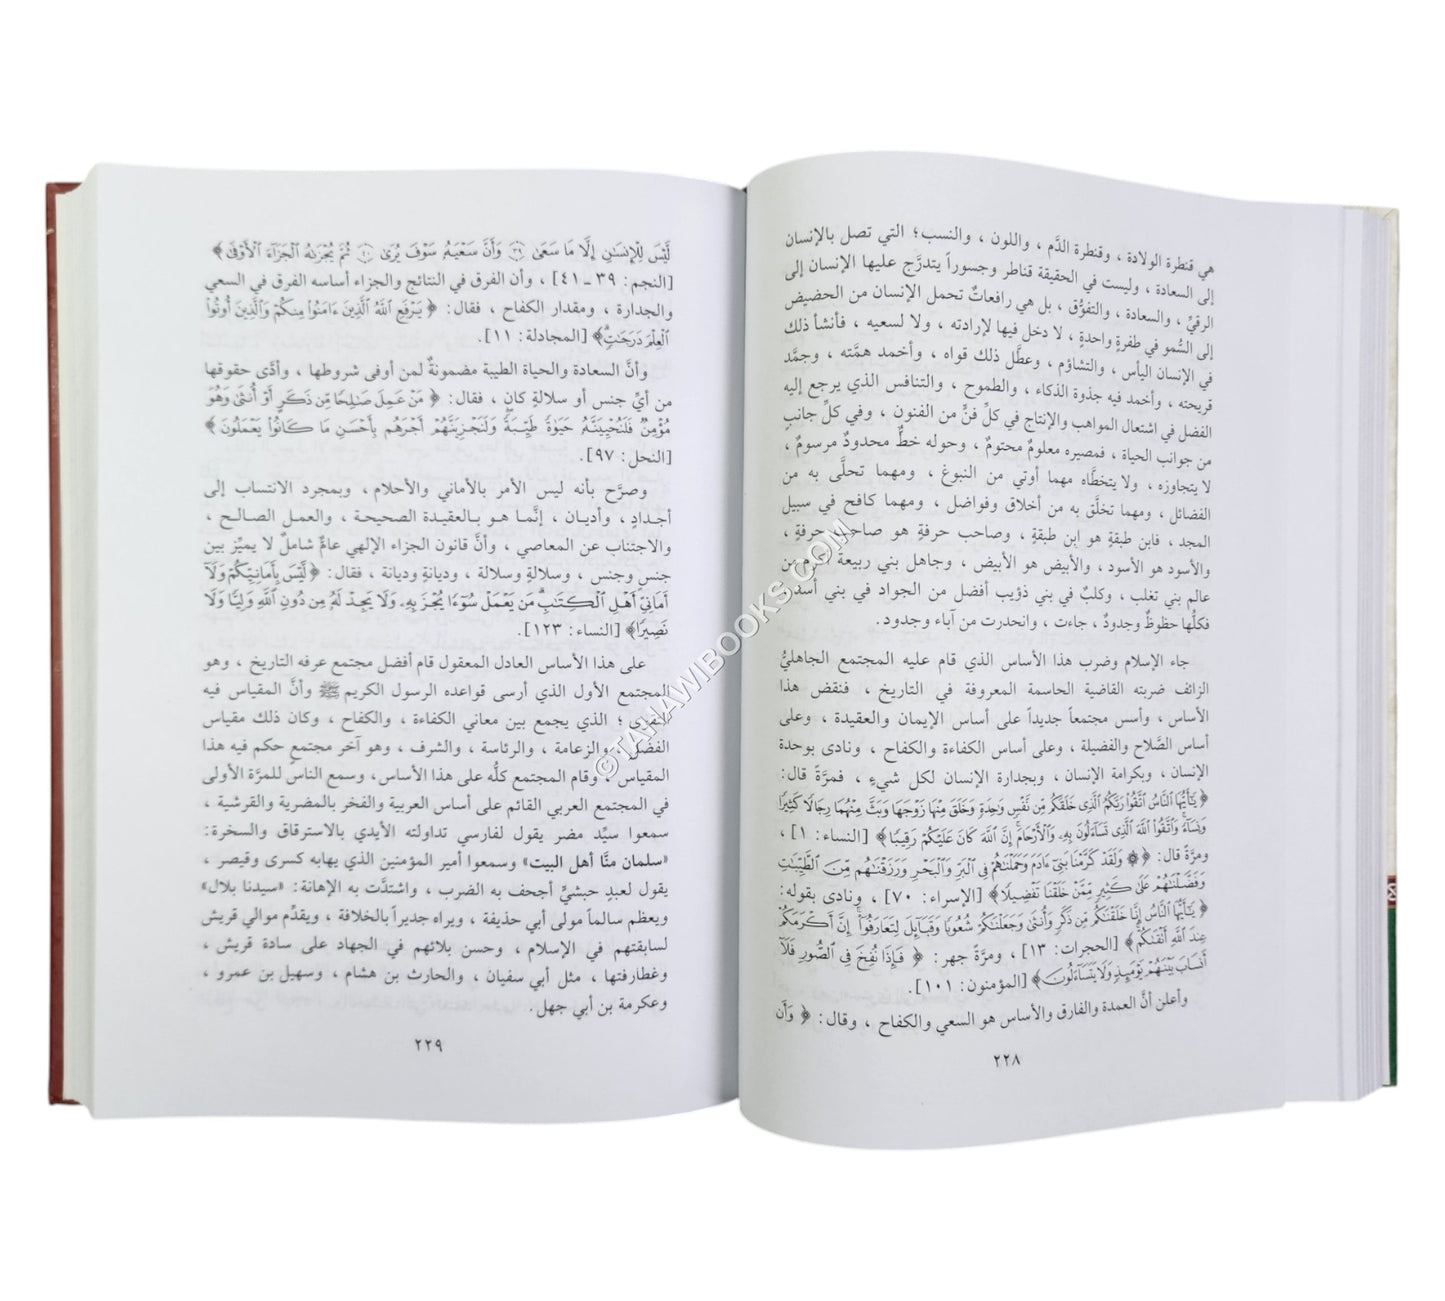 هي قنطرة الولادة ، وقنطرة الدَّم ، واللون ، والنسب؛ التي تصل بالإنسان
إلى السعادة ، وليست في الحقيقة قناطر وجسوراً يتدرَّج عليها الإنسان إلى
الرقيِّ ، والسعادة ، والتفوُّق ، بل هي رافعاتٌ تحمل الإنسان من الحضيض
إلى السُّمو في طفرةٍ واحدةٍ ، لا دخل فيها لإرادته ، ولا لسعيه ، فأنشأ ذلك
في الإنسان اليأس ، والتشاؤم ، وعطَّل ذلك قواه ، وأخمد همَّته ، وجمَّد
قريحته ، وأخمد فيه جذوة الذكاء ، والطموح ، والتنافس الذي يرجع إليه
الفضل في اشتعال المواهب والإنتاج في كلِّ فنٍّ من الفنون ، وفي كلِّ جانبٍ
من جوانب الحياة ، فمصيره معلومٌ محتومٌ ، وحوله خطٌّ محدودٌ مرسومٌ ،
لا يتجاوزه ، ولا يتخطَّاه مهما أوتي من النبوغ ، ومهما تحلَّى به من
الفضائل ، ومهما تخلَّق به من أخلاق وفواضل ، ومهما كافح في سبيل
المجد ، فابن طبقةٍ هو ابن طبقةٍ ، وصاحب حرفةٍ هو صاحب حرفةٍ ،
والأسود هو الأسود ، والأبيض هو الأبيض ، وجاهل بني ربيعة أكرم من
عالم بني تغلب ، وكلبٌ في بني ذؤيب أفضل من الجواد في بني أسد ،
فكلُّها حظوظٌ وجدودٌ ، جاءت ، وانحدرت من آباء وجدود.
جاء الإسلام وضرب هذا الأساس الذي قام عليه المجتمع الجاهليُّ
الزائف ضربته القاضية الحاسمة المعروفة في التاريخ ، فنقض هذا
الأساس ، وأسس مجتمعاً جديداً على أساس الإيمان والعقيدة ، وعلى
أساس الصَّلاح والفضيلة ، وعلى أساس الكفاءة والكفاح ، ونادى بوحدة
الإنسان ، وبكرامة الإنسان ، وبجدارة الإنسان لكل شيءٍ ، فمرَّةً قال:
﴿ يَٰٓأَيُّهَا ٱلنَّاسُ ٱتَّقُوا۟ رَبَّكُمُ ٱلَّذِى خَلَقَكُم مِّن نَّفْسٍ وَٰحِدَةٍ وَخَلَقَ مِنْهَا زَوْجَهَا وَبَثَّ مِنْهُمَا رِجَالًا كَثِيرًا
وَنِسَآءً ۚ وَٱتَّقُوا۟ ٱللَّهَ ٱلَّذِى تَسَآءَلُونَ بِهِۦ وَٱلْأَرْحَامَ ۚ إِنَّ ٱللَّهَ كَانَ عَلَيْكُمْ رَقِيبًا ﴾ [النساء: ١] ،
ومرَّة قال: ﴿ ۞ وَلَقَدْ كَرَّمْنَا بَنِىٓ ءَادَمَ وَحَمَلْنَٰهُمْ فِى ٱلْبَرِّ وَٱلْبَحْرِ وَرَزَقْنَٰهُم مِّنَ ٱلطَّيِّبَٰتِ
وَفَضَّلْنَٰهُمْ عَلَىٰ كَثِيرٍ مِّمَّنْ خَلَقْنَا تَفْضِيلًا ﴾ [الإسراء: ٧٠] ، ونادى بقوله:
﴿ يَٰٓأَيُّهَا ٱلنَّاسُ إِنَّا خَلَقْنَٰكُم مِّن ذَكَرٍ وَأُنثَىٰ وَجَعَلْنَٰكُمْ شُعُوبًا وَقَبَآئِلَ لِتَعَارَفُوٓا۟ ۚ إِنَّ أَكْرَمَكُمْ
عِندَ ٱللَّهِ أَتْقَىٰكُمْ ﴾ [الحجرات: ١٣] ، ومرَّة جهر: ﴿ فَإِذَا نُفِخَ فِى ٱلصُّورِ فَلَآ
أَنسَابَ بَيْنَهُمْ يَوْمَئِذٍ وَلَا يَتَسَآءَلُونَ ﴾ [المؤمنون: ١٠١].
وأعلن أنَّ العمدة والفارق والأساس هو السعي والكفاح ، وقال: ﴿ وَأَن
٢٢٨
لَّيْسَ لِلْإِنسَٰنِ إِلَّا مَا سَعَىٰ ۝٣٩ وَأَنَّ سَعْيَهُۥ سَوْفَ يُرَىٰ ۝٤٠ ثُمَّ يُجْزَىٰهُ ٱلْجَزَآءَ ٱلْأَوْفَىٰ ﴾
[النجم: ٣٩ - ٤١] ، وأن الفرق في النتائج والجزاء أساسه الفرق في السعي
والجدارة ، ومقدار الكفاح ، فقال: ﴿ يَرْفَعِ ٱللَّهُ ٱلَّذِينَ ءَامَنُوا۟ مِنكُمْ وَٱلَّذِينَ أُوتُوا۟
ٱلْعِلْمَ دَرَجَٰتٍ ۚ ﴾ [المجادلة: ١١].
وأنَّ السعادة والحياة الطيبة مضمونةٌ لمن أوفى شروطها ، وأدَّى حقوقها
من أيِّ جنس أو سلالةٍ كان ، فقال: ﴿ مَنْ عَمِلَ صَٰلِحًا مِّن ذَكَرٍ أَوْ أُنثَىٰ وَهُوَ
مُؤْمِنٌ فَلَنُحْيِيَنَّهُۥ حَيَوٰةً طَيِّبَةً ۖ وَلَنَجْزِيَنَّهُمْ أَجْرَهُم بِأَحْسَنِ مَا كَانُوا۟ يَعْمَلُونَ ﴾
[النحل: ٩٧].
وصرَّح بأنه ليس الأمر بالأماني والأحلام ، وبمجرد الانتساب إلى
أجدادٍ ، وأديان ، إنَّما هو بالعقيدة الصحيحة ، والعمل الصالح ،
والاجتناب عن المعاصي ، وأنَّ قانون الجزاء الإلهي عامٌّ شاملٌ لا يميِّز بين
جنسٍ وجنس ، وسلالةٍ وسلالة ، وديانةٍ وديانة ، فقال: ﴿ لَّيْسَ بِأَمَانِيِّكُمْ وَلَآ
أَمَانِىِّ أَهْلِ ٱلْكِتَٰبِ ۗ مَن يَعْمَلْ سُوٓءًا يُجْزَ بِهِۦ وَلَا يَجِدْ لَهُۥ مِن دُونِ ٱللَّهِ وَلِيًّا وَلَا
نَصِيرًا ﴾ [النساء: ١٢٣].
على هذا الأساس العادل المعقول قام أفضل مجتمع عرفه التاريخ ، وهو
المجتمع الأول الذي أرسى قواعده الرسول الكريم ﷺ وأنَّ المقياس فيه
التقوى ؛ الذي يجمع بين معاني الكفاءة ، والكفاح ، وكان ذلك مقياس
الفضل ، والزعامة ، والرئاسة ، والشرف ، وهو آخر مجتمعٍ حكم فيه هذا
المقياس ، وقام المجتمع كلُّه على هذا الأساس، وسمع الناس للمرَّة الأولى
في المجتمع العربي القائم على أساس العربية والفخر بالمضرية والقرشية ،
سمعوا سيِّد مضر يقول لفارسي تداولته الأيدي بالاسترقاق والسخرة:
«سلمان منَّا أهل البيت» وسمعوا أمير المؤمنين الذي يهابه كسرى وقيصر ،
يقول لعبدٍ حبشيٍّ أجحف به الضرب ، واشتدَّت به الإهانة: «سيدنا بلال»
ويعظم سالماً مولى أبي حذيفة ، ويراه جديراً بالخلافة ، ويقدِّم موالي قريش
لسابقتهم في الإسلام ، وحسن بلائهم في الجهاد على سادة قريش ،
وغطارفتها ، مثل أبي سفيان ، والحارث بن هشام ، وسهيل بن عمرو ،
وعكرمة بن أبي جهل.
٢٢٩
©TAHAWIBOOKS.COM